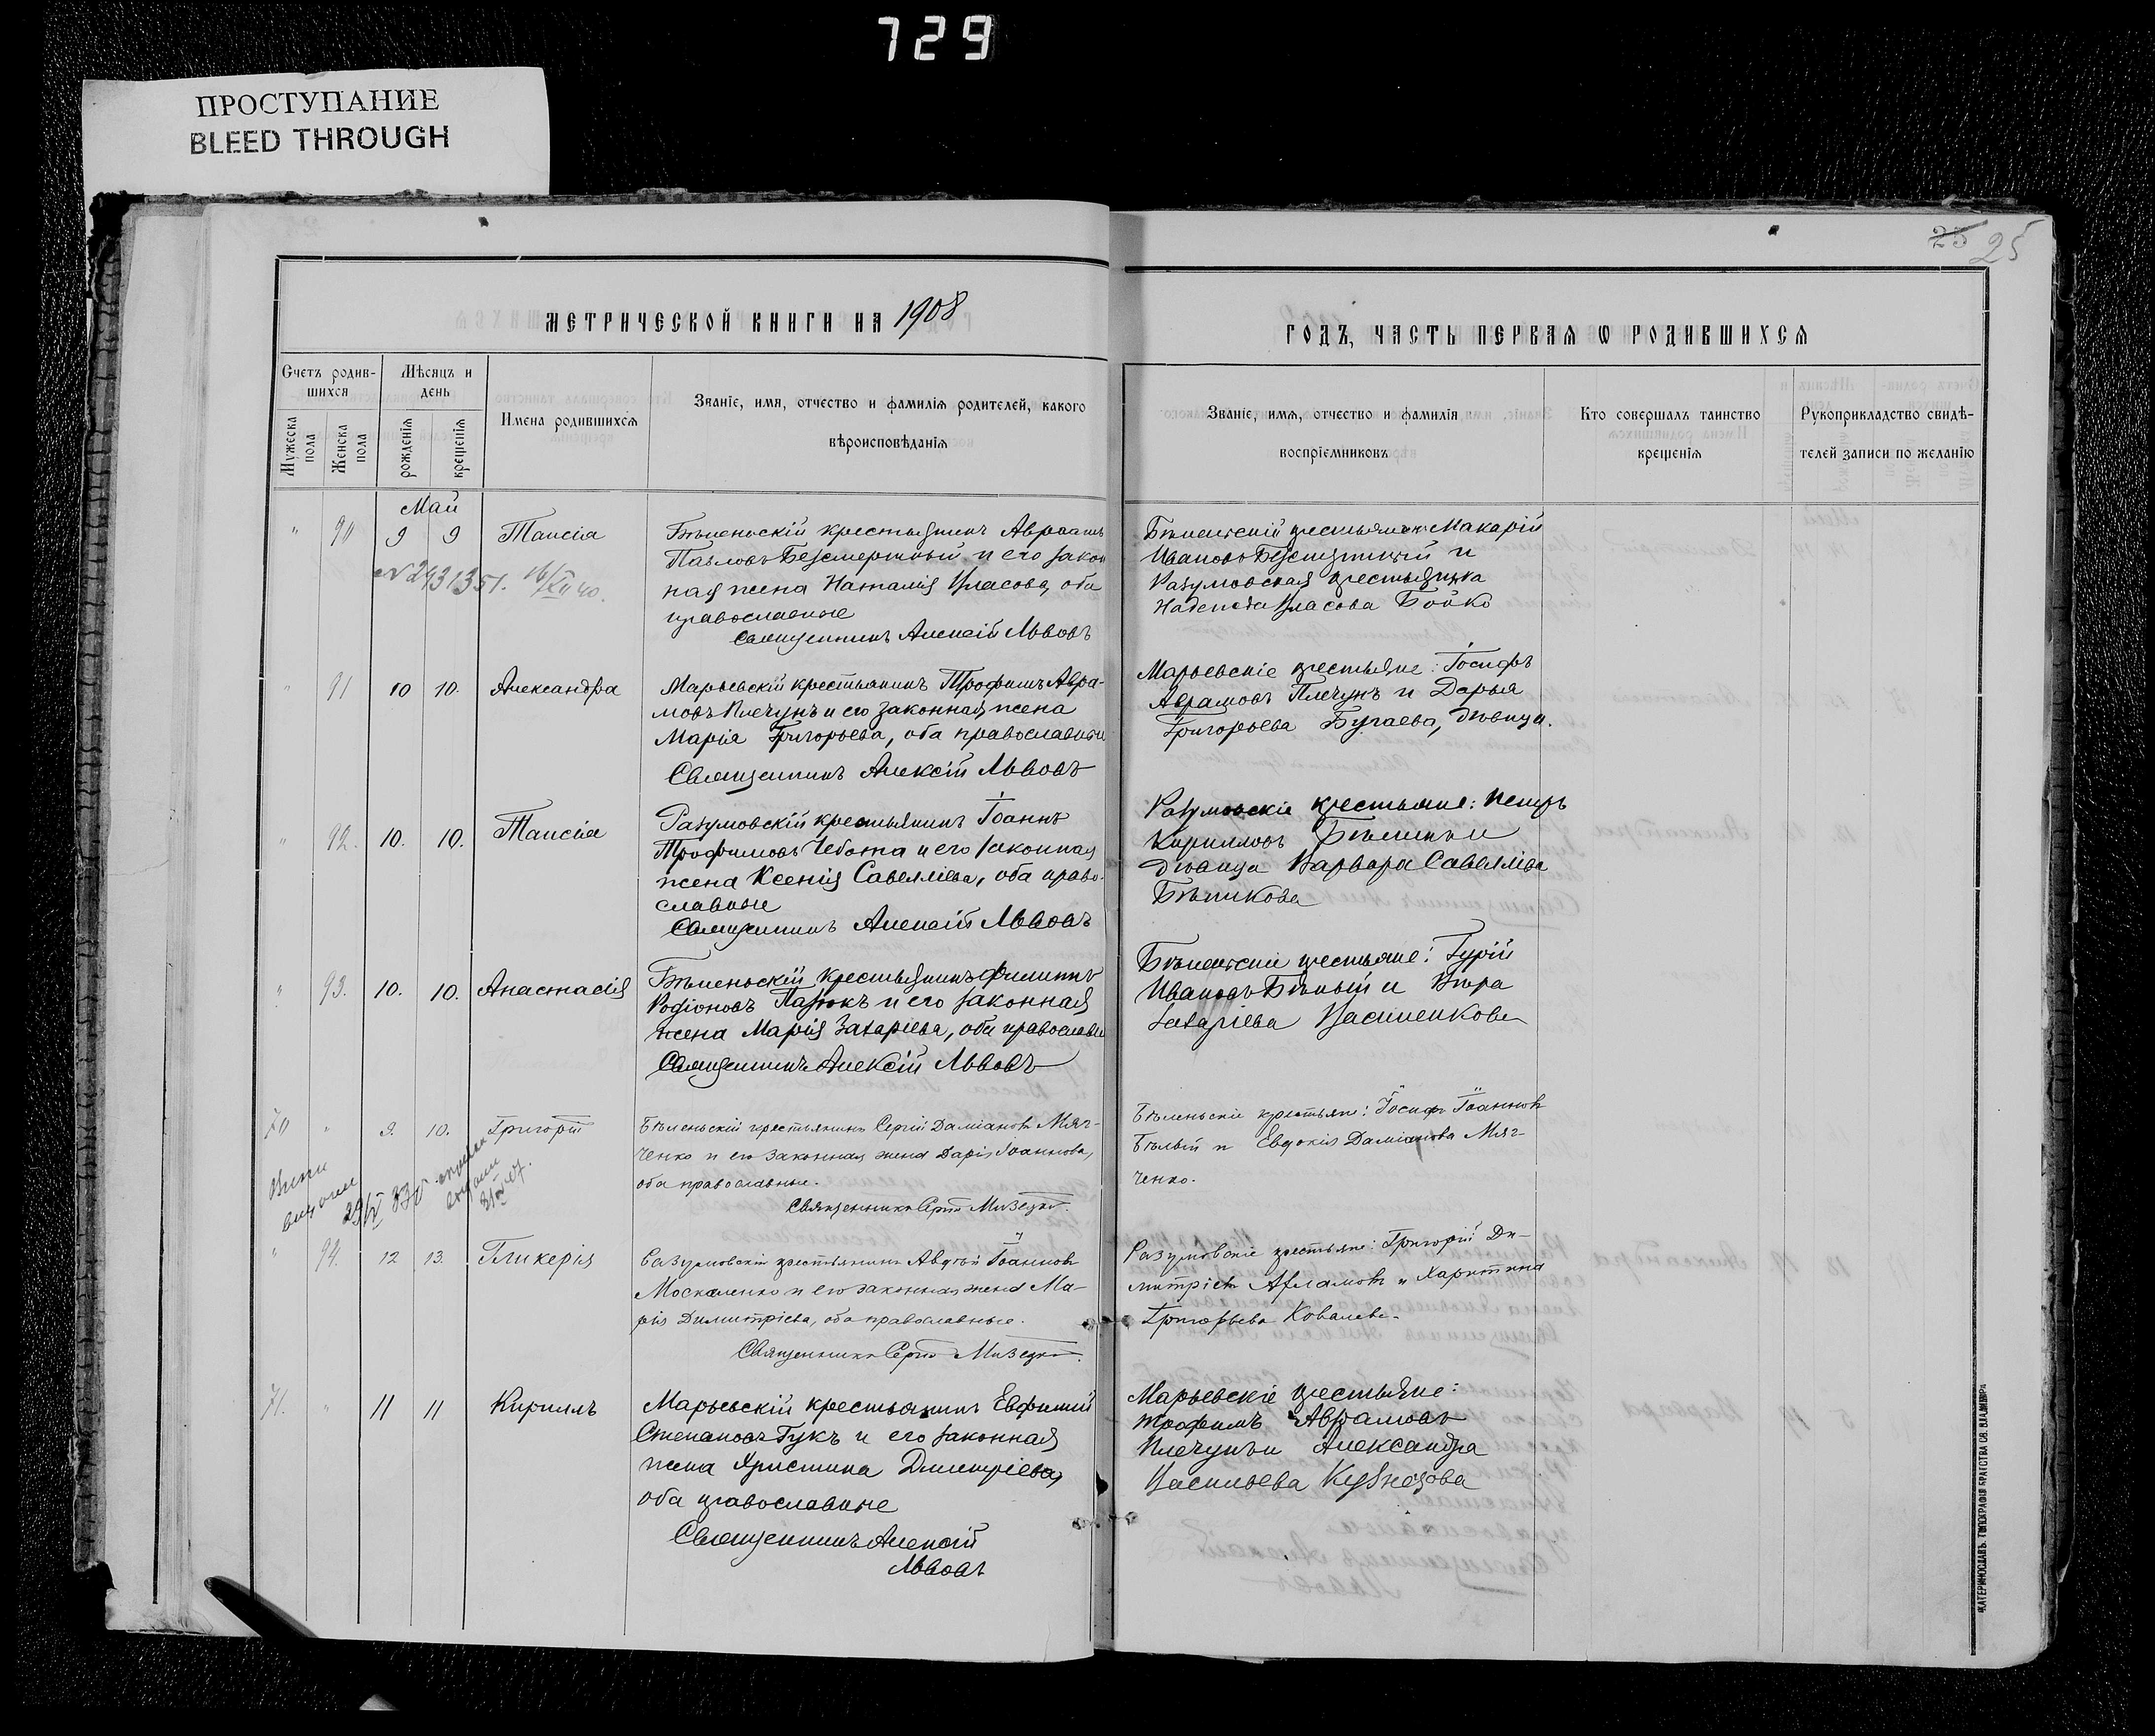 729
ПРОСТУПАНИЕ
BLEED THROUGH
25 25
МЕТРИЧЕСКОЙ КНИГИ НА 1908
ГОДЪ, ЧАСТЬ ПЕРВАЯ Ѡ РОДИВШИХСЯ
Счетъ родив-
шихся
Мужеска
пола
Женска
пола
Мѣсяцъ и
день
рожденія
крещенія
Имена родившихся
Званіе, имя, отчество и фамилія родителей, какого
вѣроисповѣданія
Званіе, имя, отчество и фамилія
воспріемниковъ
Кто совершалъ таинство
крещенія
Рукоприкладство свидѣ-
телей записи по желанію
Май
" 90 9 9 Таисія
№ 2431351. 16/XII 40.
Бѣленьскій крестьянинъ Авраамъ
Павловъ Безсмертный и его закон
ная жена Наталія Власова, оба
православные
Священникъ Алексій Львовъ
Бѣленьскій крестьянинъ Макарій
Ивановъ Безсмертный и
Разумовская крестьянка
Надежда Власова Бойко
" 91 10 10. Александра
Марьевскій крестьянинъ Трофимъ Авра-
мовъ Плечунъ и его законная жена
Марія Григорьева, оба православные
Священникъ Алексій Львовъ
Марьевскіе крестьяне: Іосифъ
Аврамовъ Плечунъ и Дарья
Григорьева Бугаева, дѣвица.
" 92. 10. 10. Таисія
Разумовскій крестьянинъ Іоаннъ
Трофимовъ Чебота и его законная
жена Ксенія Савелліева, оба право-
славные
Священникъ Алексій Львовъ
Разумовскіе крестьяне: Петръ
Кирилловъ
дѣвица Варвара Савелліева
" 93. 10. 10. Анастасія
Бѣленьскій крестьянинъ Филиппъ
Родіоновъ Пазюкъ и его законная
жена Марія Захаріева, оба православные
Священникъ Алексій Львовъ
Бѣленьскіе крестьяне: Гурій
Ивановъ Бѣлый и Вѣра
Захаріева Василенкова
70 " 9. 10. Григорій
Бѣленьскій крестьянинъ Сергій Даміановъ Мяч-
ченко и его законная жена Дарія Іоаннова,
оба православные.
Священникъ Сергій Мизецкій.
Бѣленьскіе крестьяне: Іосифъ Іоанновъ
Бѣлый и Евдокія Даміанова Мяч-
ченко.
" 94. 12 13. Гликерія
Разумовскій крестьянинъ Авдѣй Іоанновъ
Москаленко и его законная жена Ма-
рія Димитріева, оба православные.
Священникъ Сергій Мизецкій.
Разумовскіе крестьяне: Григорій Ди-
митріевъ и Харитина
Григорьева Ковалева.
71. " 11 11 Кириллъ
Марьевскій крестьянинъ Евфимій
Степановъ Гукъ и его законная
жена Христина Димитріева,
оба православные
Священникъ Алексій
Львовъ
Марьевскіе крестьяне:
Трофимъ Аврамовъ
Плечунъ и Александра
Васильева Кузнецова
ЕКАТЕРИНОСЛАВЪ. ТИПОГРАФІЯ БРАТСТВА СВ. ВЛАДИМІРА